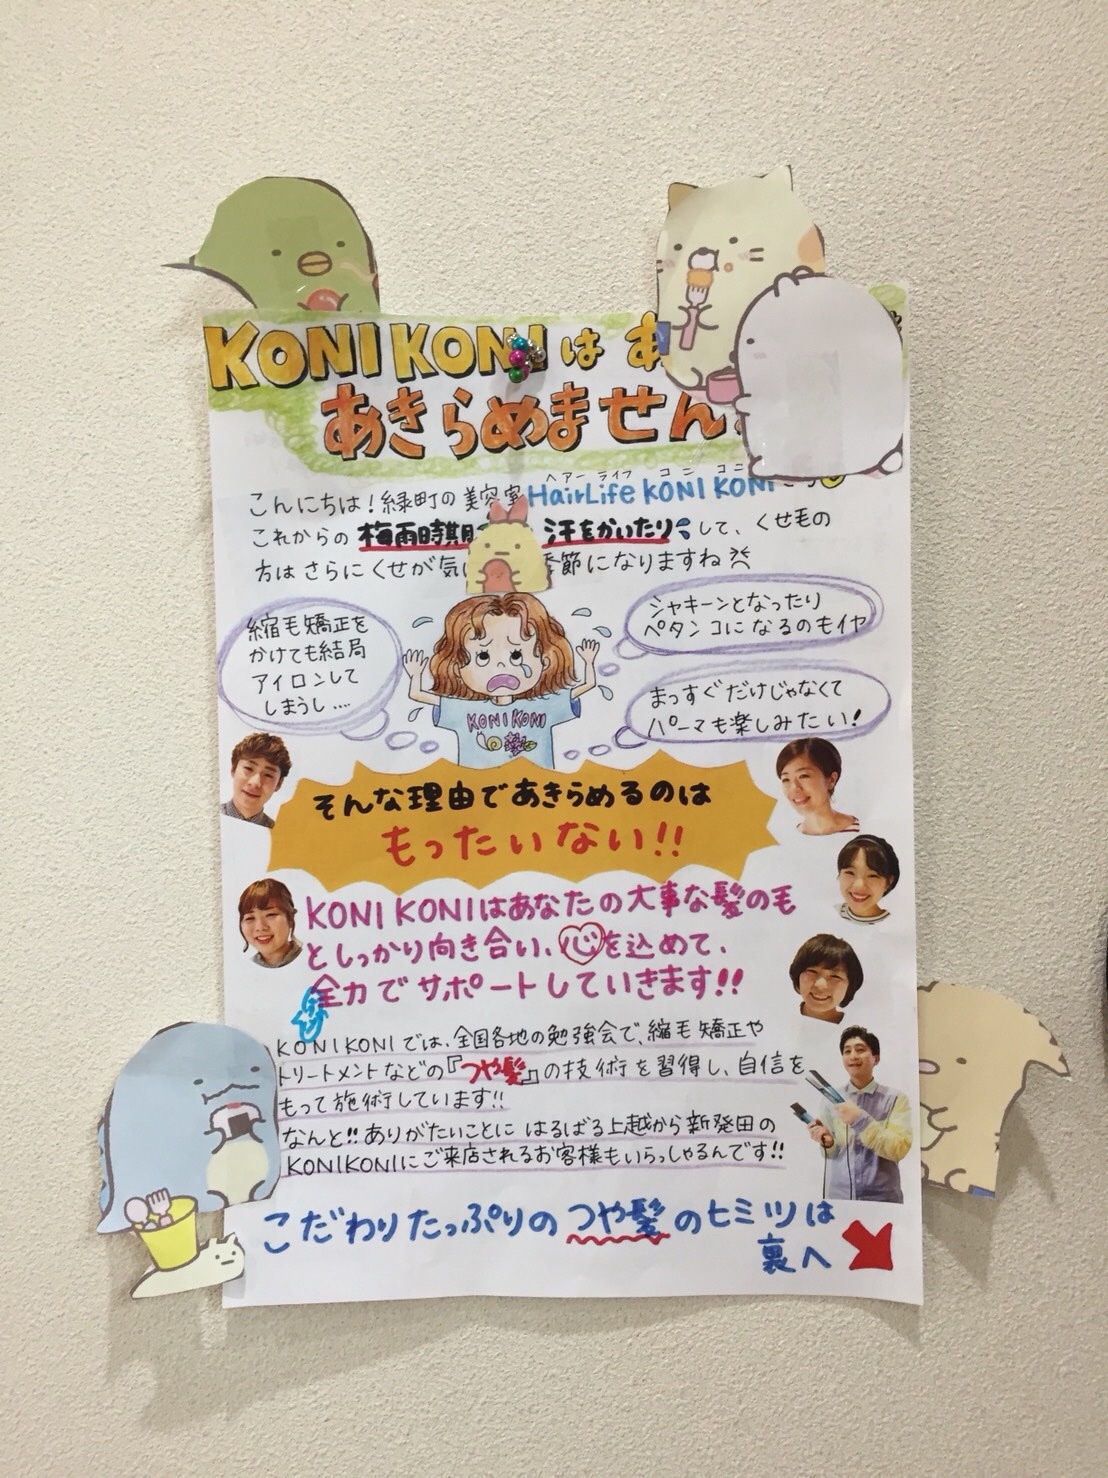 KONI KONI は あ
あきらめません
ヘアー ライフ コニ コニ
こんにちは！緑町の美容室HairLife KONI KONI
これからの 梅雨時期 汗をかいたりして、くせ毛の
方はさらにくせが気 季節になりますね
縮毛矯正を
かけても結局
アイロンして
しまうし....
シャキーンとなったり
ペタンコになるのもイヤ
まっすぐだけじゃなくて
パーマも楽しみたい！
KONI KONI
そんな理由であきらめるのは
もったいない!!
KONI KONIはあなたの大事な髪の毛
としっかり向き合い、心を込めて、
全力でサポートしていきます!!
KONIKONIでは、全国各地の勉強会で、縮毛矯正や
トリートメントなどの『つや髪』の技術を習得し、自信を
もって施術しています!!
なんと!!ありがたいことに はるばる上越から新発田の
KONIKONIにご来店されるお客様もいらっしゃるんです!!
こだわりたっぷりのつや髪のヒミツは
裏へ